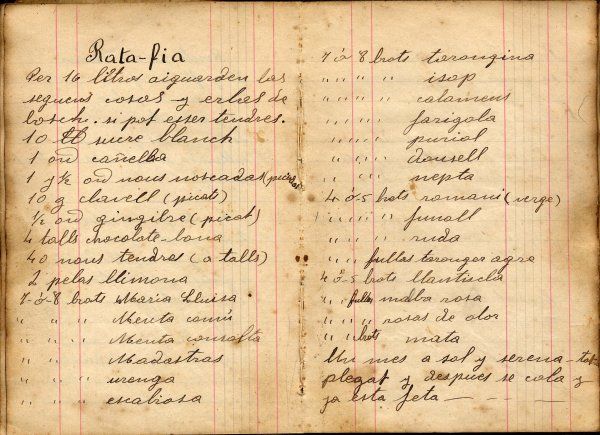 Rata-fia
Per 16 litros aiguarden las
seguens cosas y erbas de
bosch. si pot esser tendres.
10 ℔ sucre blanch
1 ond cañella
1 y ½ ond nous noscadas (picadas)
10 g clavill (picats)
½ ond gingibre (picat)
4 talls chocolate bona
40 nous tendres (a talls)
2 pelas llimona
7-ó-8 brots Maria Lluisa
" " " Menta comú
" " " Menta consolta
" " " Madastras
" " " urenga
" " " escabiosa
7 ó 8 brots tarongina
" " " " isop
" " " " calamens
" " " " farigola
" " " " puriol
" " " donsell
" " " nepta
4 ó-5 brots romani (verge)
" " " " funoll
" " " ruda
" " " fullas taronger agre
4 ó-5 brots llantiscla
" " fullas malba rosa
" " " " rosas de olor
" " brots mata
Un mes a sol y serena - tot
plegat y despues se cola y
ja esta feta — — — —